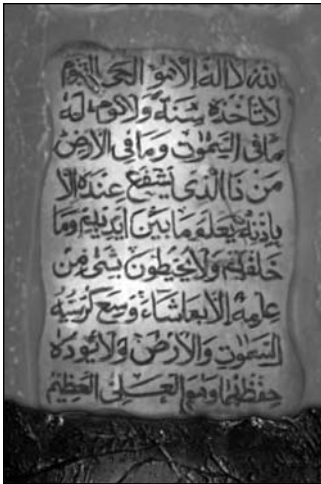 الله لا اله الا هو الحي القيوم
لا تاخذه سنة ولا نوم له
ما في السموت وما في الارض
من ذا الذي يشفع عنده الا
باذنه يعلم ما بين ايديهم وما
خلفهم ولا يحيطون بشئ من
علمه الا بما شاء وسع كرسيه
السموت والارض ولا يؤده
حفظهما وهو العلي العظيم